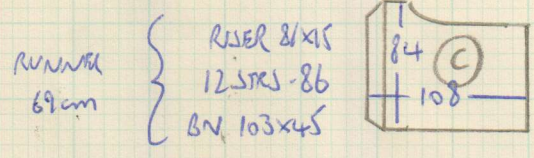 RUNNER
69cm
RISER 81x15
12 STRS - 86
BN 103x45
84
C
108